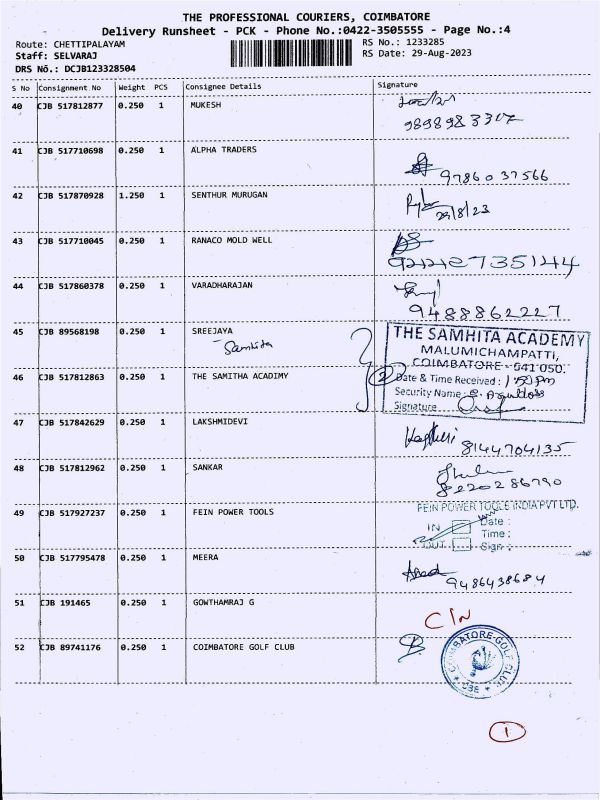 THE PROFESSIONAL COURIERS, COIMBATORE
Delivery Runsheet - PCK - Phone No.:0422-3505555 - Page No.:4
Route: CHETTIPALAYAM RS No.: 1233285
Staff: SELVARAJ RS Date: 29-Aug-2023
DRS No.: DCJB123328504
S No Consignment No Weight PCS Consignee Details Signature
40 CJB 517812877 0.250 1 MUKESH
9898983307
41 CJB 517710698 0.250 1 ALPHA TRADERS
9786037566
42 CJB 517870928 1.250 1 SENTHUR MURUGAN
29/8/23
43 CJB 517710045 0.250 1 RANACO MOLD WELL
44 CJB 517860378 0.250 1 VARADHARAJAN
9488862227
45 CJB 89568198 0.250 1 SREEJAYA
Samhita
THE SAMHITA ACADEMY
MALUMICHAMPATTI,
COIMBATORE - 641 050.
46 CJB 517812863 0.250 1 THE SAMITHA ACADIMY
2 Date & Time Received : 1:50 Pm
Security Name :
Signature
47 CJB 517842629 0.250 1 LAKSHMIDEVI
8144704135
48 CJB 517812962 0.250 1 SANKAR
8220286790
49 CJB 517927237 0.250 1 FEIN POWER TOOLS
FEIN POWER TOOLS INDIA PVT LTD.
IN Date :
Time :
OUT Sign :
50 CJB 517795478 0.250 1 MEERA
9486438684
51 CJB 191465 0.250 1 GOWTHAMRAJ G
C/N
52 CJB 89741176 0.250 1 COIMBATORE GOLF CLUB
COIMBATORE GOLF CLUB
CBE
1